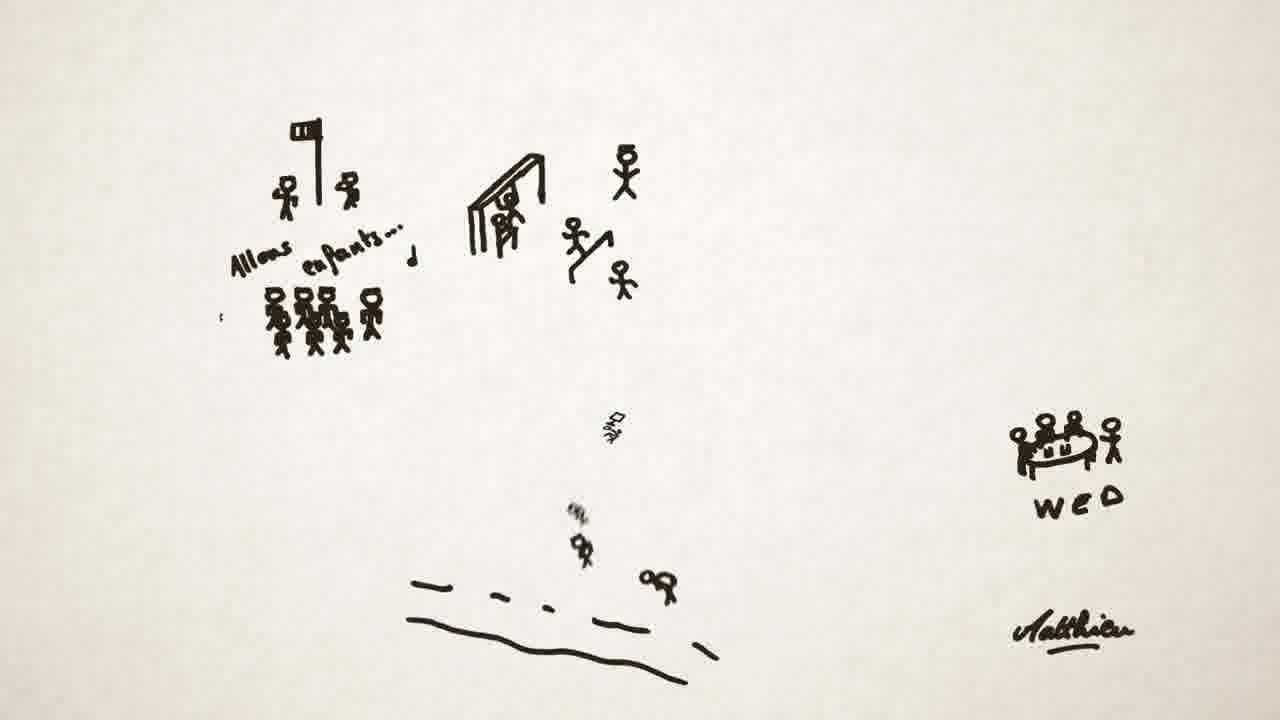 Allons
enfants...
WED
Matthieu